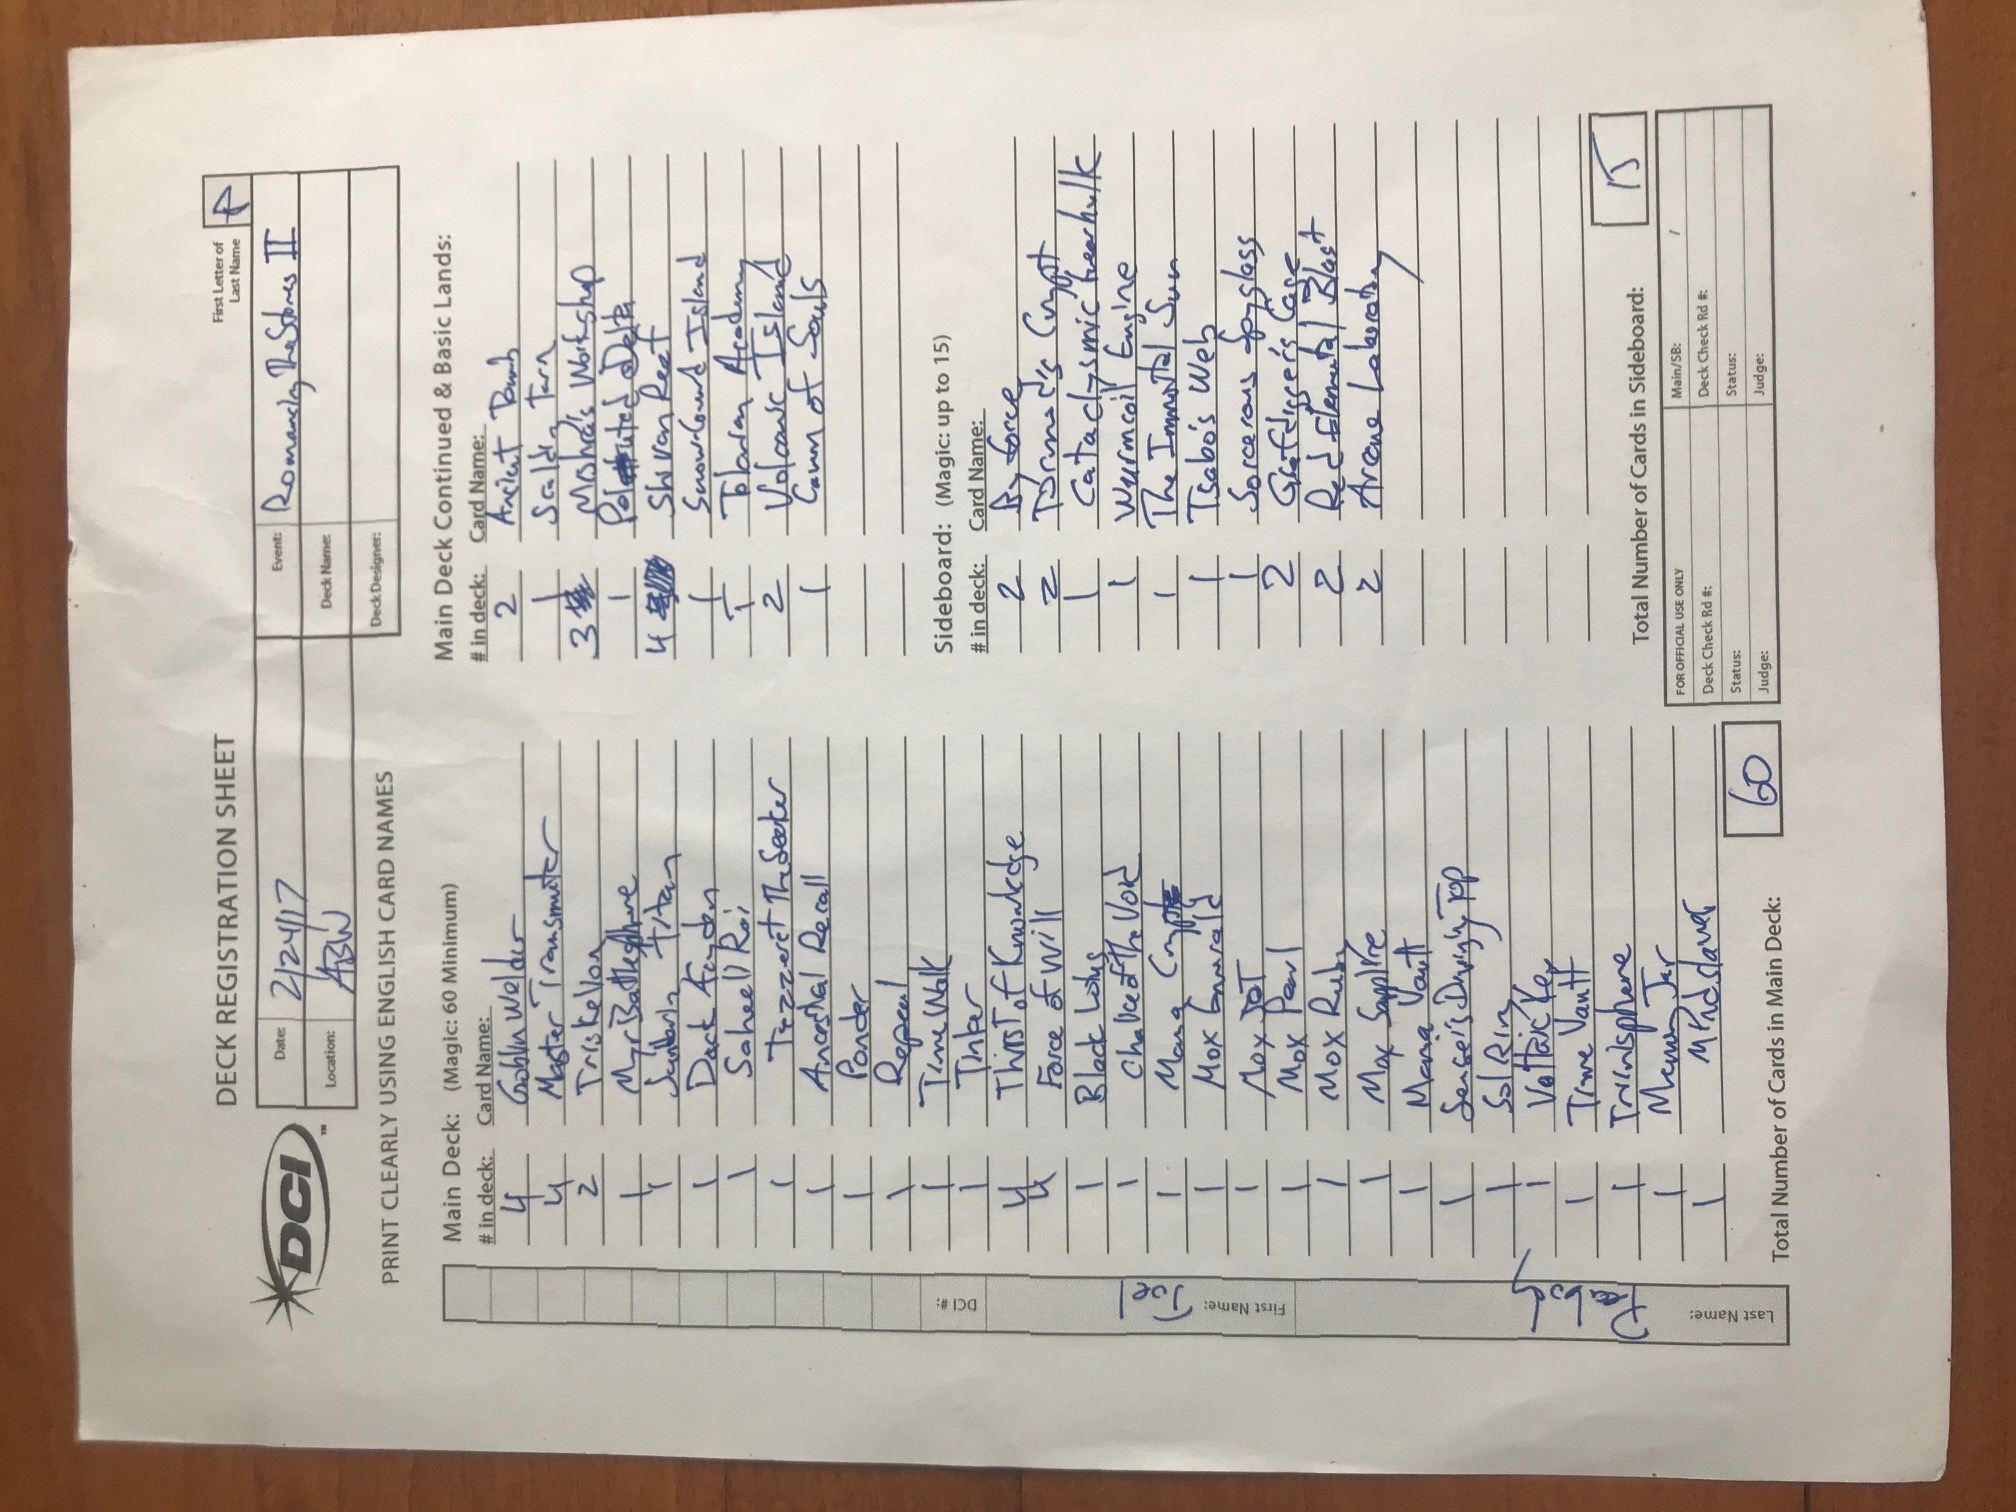 DECK REGISTRATION SHEET
First Letter of
Last Name
P
DCI
TM
Date: 2/24/17
Event: Romancing The Stones II
Location: ABW
Deck Name:
Deck Designer:
PRINT CLEARLY USING ENGLISH CARD NAMES
Main Deck: (Magic: 60 Minimum)
# in deck: Card Name:
4 Goblin Welder
4 Master Transmuter
2 Triskelion
1 Myr Battlesphere
1 Sundering Titan
1 Dack Fayden
1 Saheeli Rai
1 Tezzeret The Seeker
1 Ancestral Recall
1 Ponder
1 Repeal
1 Time Walk
1 Tinker
4 Thirst of Knowledge
4 Force of Will
1 Black Lotus
1 Chalice of The Void
1 Mana Crypt
1 Mox Emerald
1 Mox JeT
1 Mox Pearl
1 Mox Ruby
1 Mox Sapphire
1 Mana Vault
1 Sensei's Divining Top
1 Sol Ring
1 Voltaic Key
1 Time Vault
1 Trinisphere
1 Memory Jar
1 Mindslaver
Total Number of Cards in Main Deck: 60
Main Deck Continued & Basic Lands:
# in deck: Card Name:
2 Ancient Tomb
1 Scalding Tarn
3 Mishra's Workshop
1 Polluted Delta
4 Shivan Reef
1 Snow-Covered Island
1 Tolarian Academy
2 Volcanic Island
1 Cavern of Souls
Sideboard: (Magic: up to 15)
# in deck: Card Name:
2 By force
2 Tormod's Crypt
1 Cataclysmic Gearhulk
1 Wurmcoil Engine
1 The Immortal Sun
1 Tsabo's Web
1 Sorcerous Spyglass
2 Grafdigger's Cage
2 Red Elemental Blast
2 Arcane Laboratory
Total Number of Cards in Sideboard: 15
FOR OFFICIAL USE ONLY
Main/SB: /
Deck Check Rd #:
Deck Check Rd #:
Status:
Status:
Judge:
Judge:
Last Name: Peabody
First Name: Joel
DCI #: